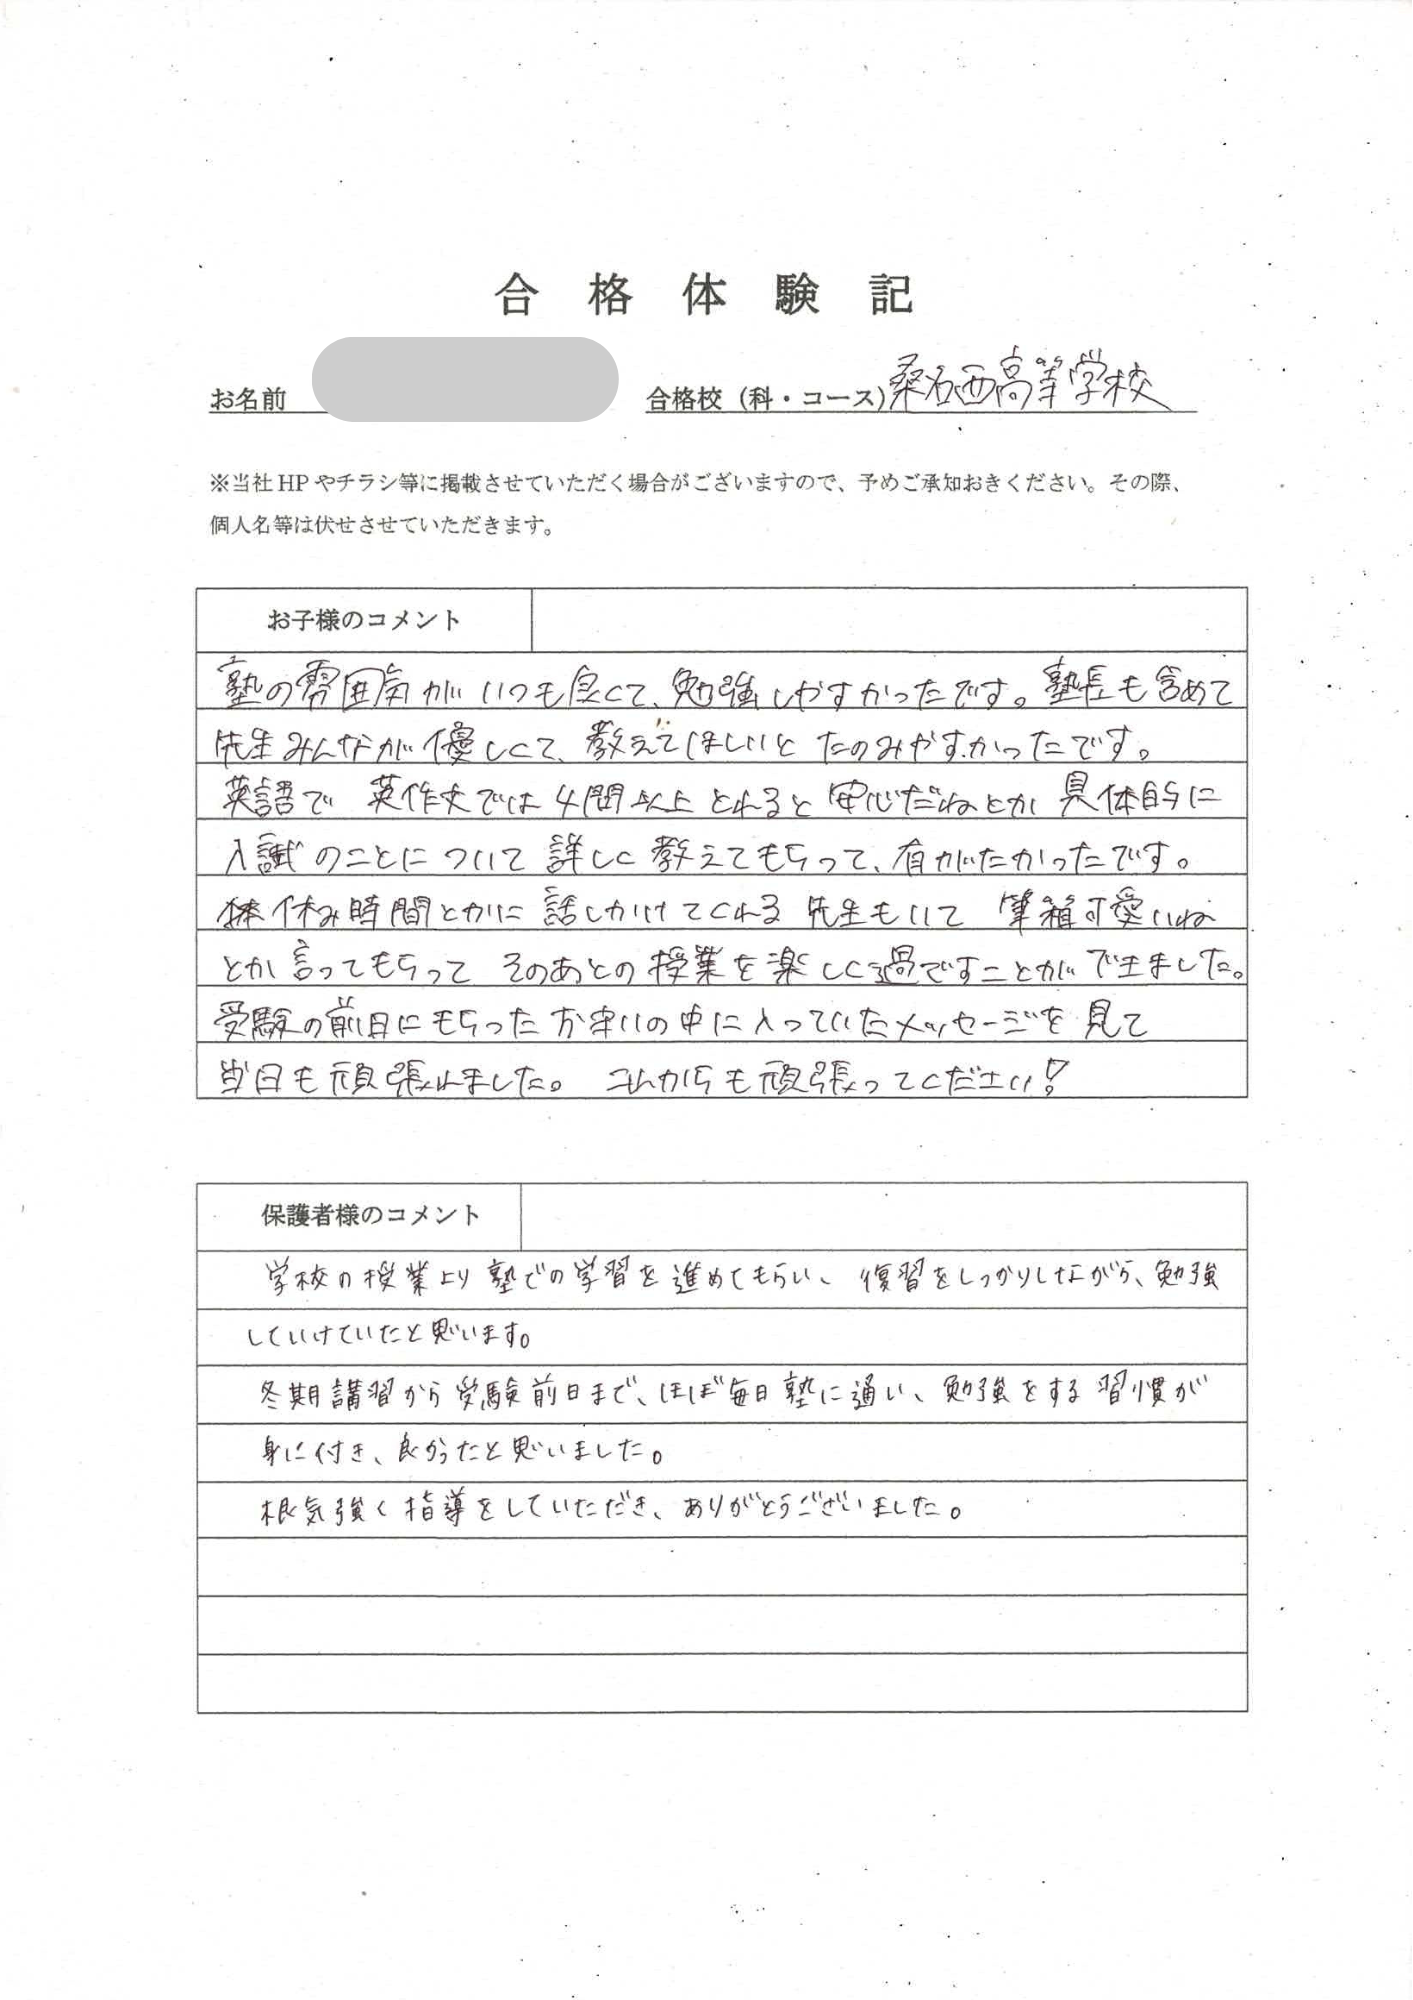 合格体験記
お名前
合格校（科・コース）桑名西高等学校
※当社HPやチラシ等に掲載させていただく場合がございますので、予めご承知おきください。その際、
個人名等は伏せさせていただきます。
お子様のコメント
塾の雰囲気がいつも良くて、勉強しやすかったです。塾長も含めて
先生みんなが優しくて、教えてほしいとたのみやすかったです。
英語で 英作文では4問以上とれると安心だねとか具体的に
入試のことについて詳しく教えてもらって、有がたかったです。
休み時間とかに話しかけてくれる先生もいて 筆箱可愛いね
とか言ってもらって そのあとの授業を楽しく過ですことがで王ました。
受験の前日にもらったお守りの中に入っていたメッセージを見て
当日も頑張れました。 これからも頑張ってください！
保護者様のコメント
学校の授業より塾での学習を進めてもらい、復習をしっかりしながら、勉強
していけていたと思います。
冬期講習から受験前日まで、ほぼ毎日塾に通い、勉強をする習慣が
身に付き、良かったと思いました。
根気強く指導をしていただき、ありがとうございました。